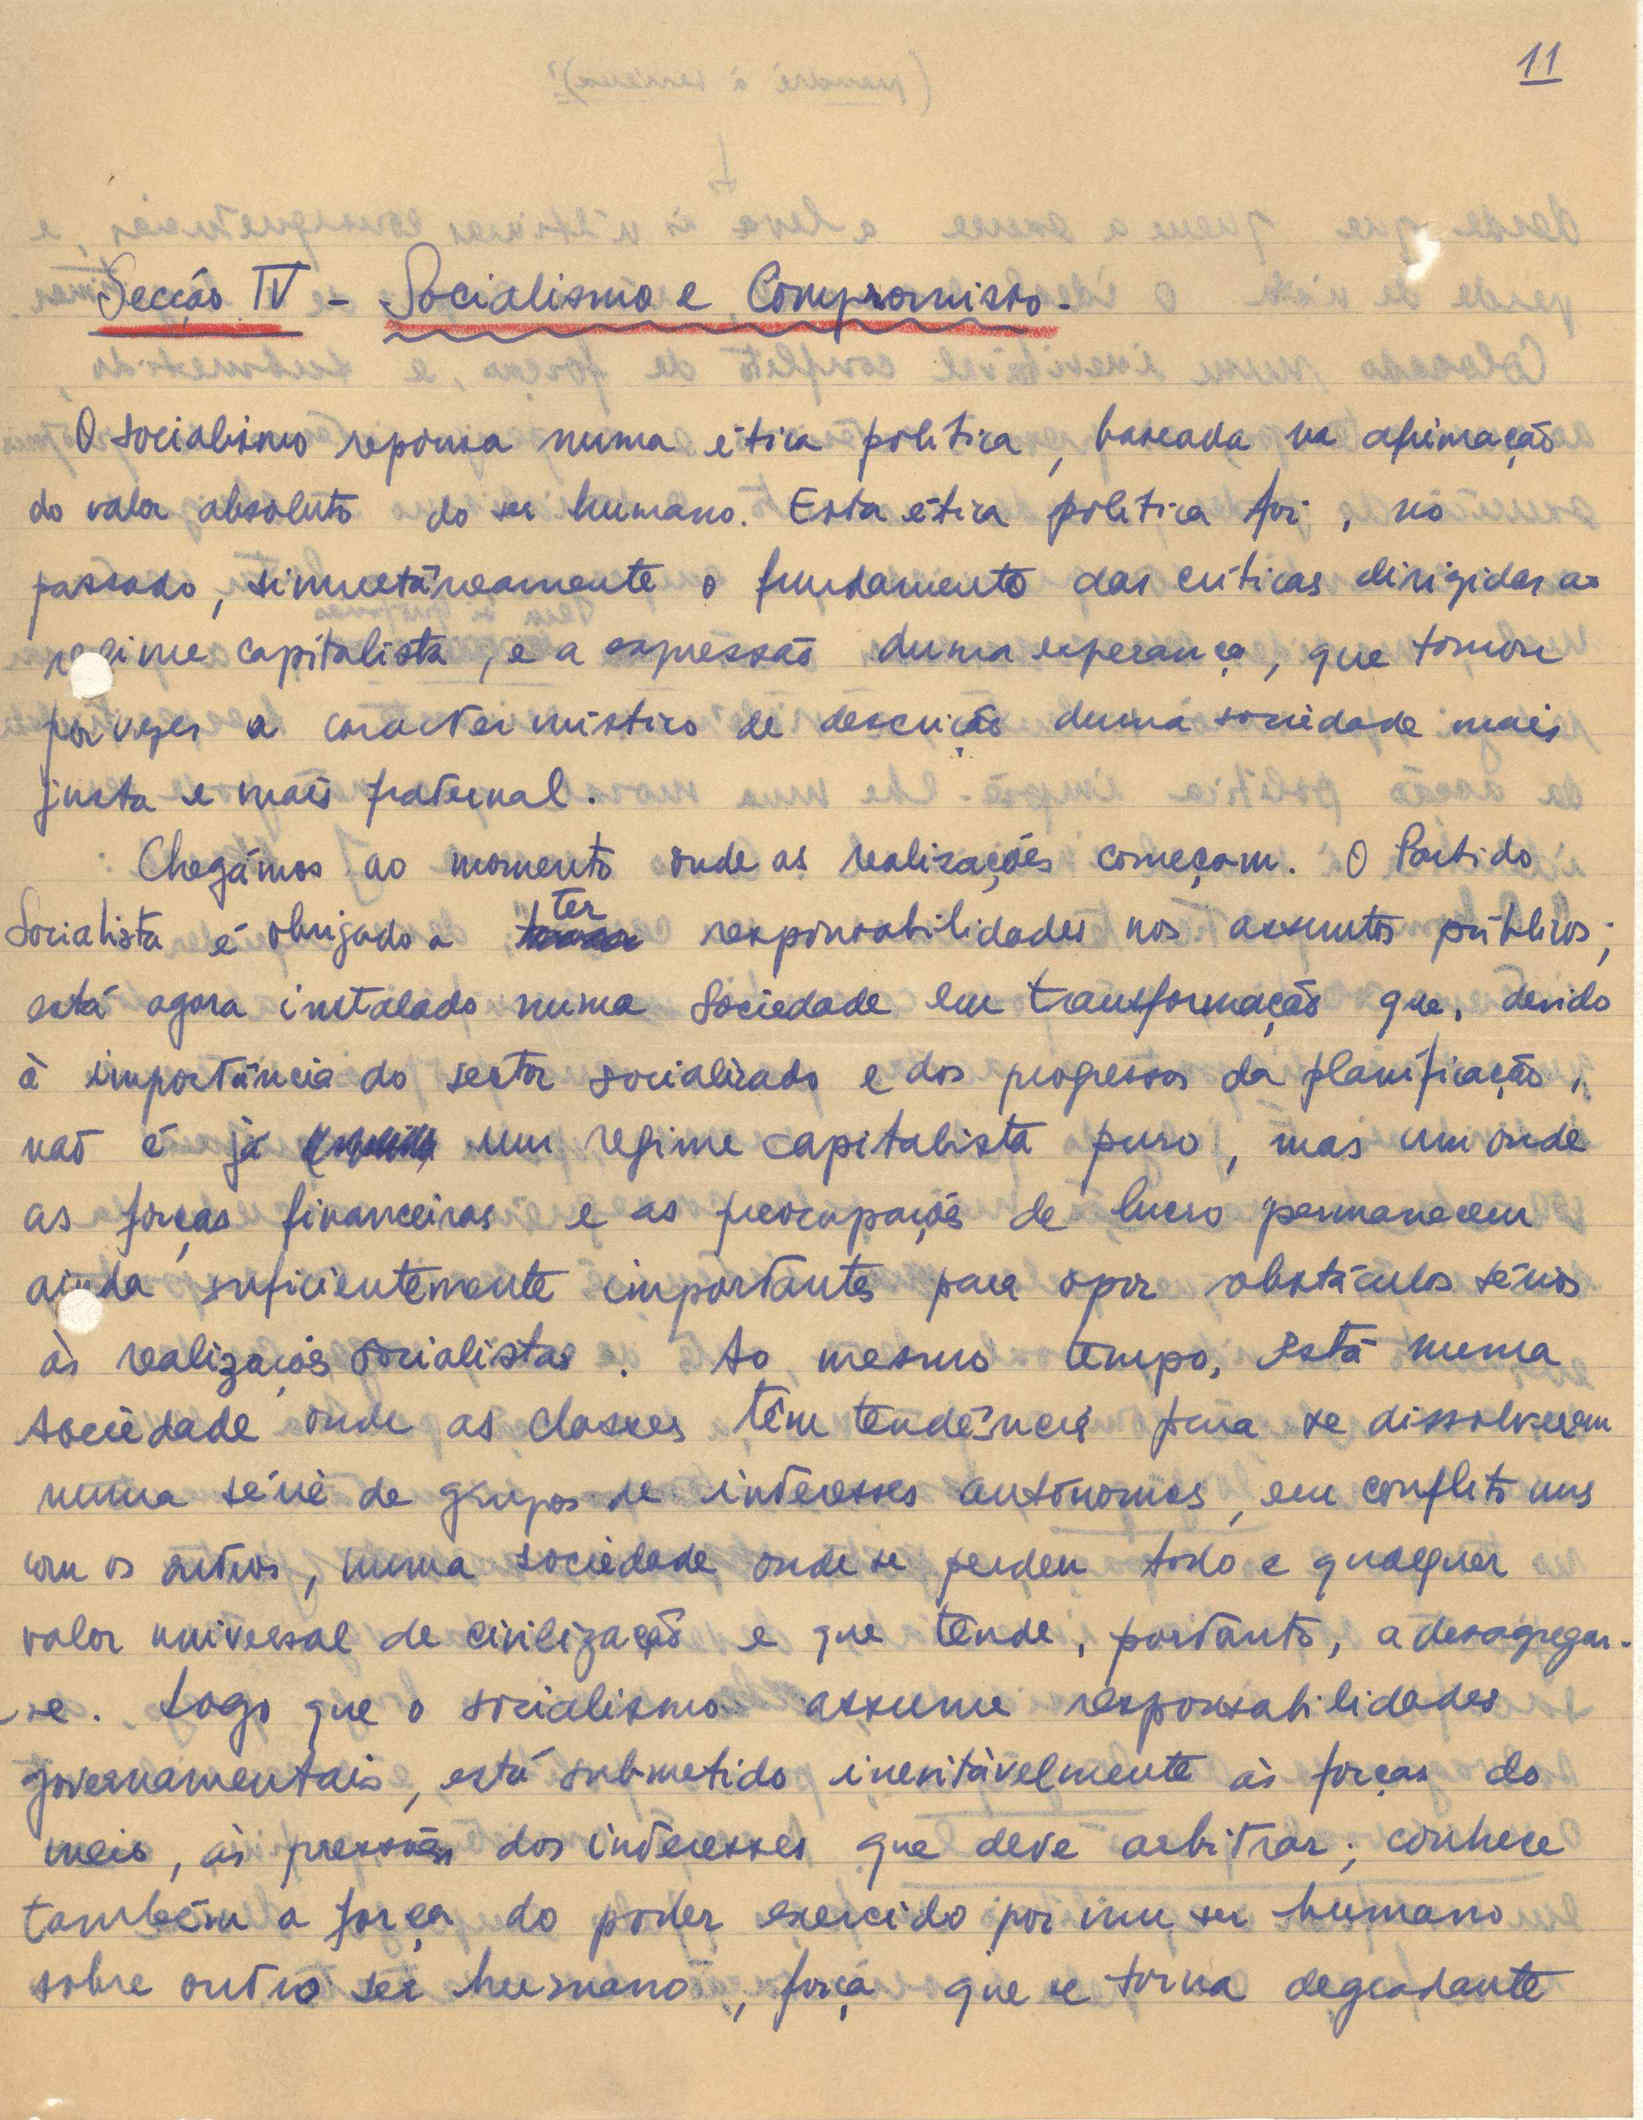 11
Secção IV - Socialismo e Compromisso.
O socialismo repousa numa ética política, baseada na afirmação
do valor absoluto do ser humano. Esta ética política foi, no
passado, simultâneamente o fundamento das críticas dirigidas ao
regime capitalista, e a expressão duma esperança, que tomou
por vezes o caracter místico de descrição duma sociedade mais
justa e mais fraternal.
Chegámos ao momento onde as realizações começam. O Partido
Socialista é obrigado a ter responsabilidades nos assuntos públicos;
está agora instalado numa sociedade em transformação que, devido
à importância do sector socializado e dos progressos da planificação,
não é já um regime capitalista puro, mas um onde
as forças financeiras e as preocupações de lucro permanecem
ainda suficientemente importantes para opor obstáculos sérios
às realizações socialistas. Ao mesmo tempo, está numa
sociedade onde as classes têm tendência para se dissolverem
numa série de grupos de interesses autónomos, em conflito uns
com os outros, numa sociedade onde se perdeu todo e qualquer
valor universal de civilização e que tende, portanto, a desagregar-
-se. Logo que o socialismo assume responsabilidades
governamentais, está submetido inevitàvelmente às forças do
meio, às pressões dos interesses que deve arbitrar; conhece
também a força do poder exercido por um ser humano
sobre outro ser humano, força que se torna degradante